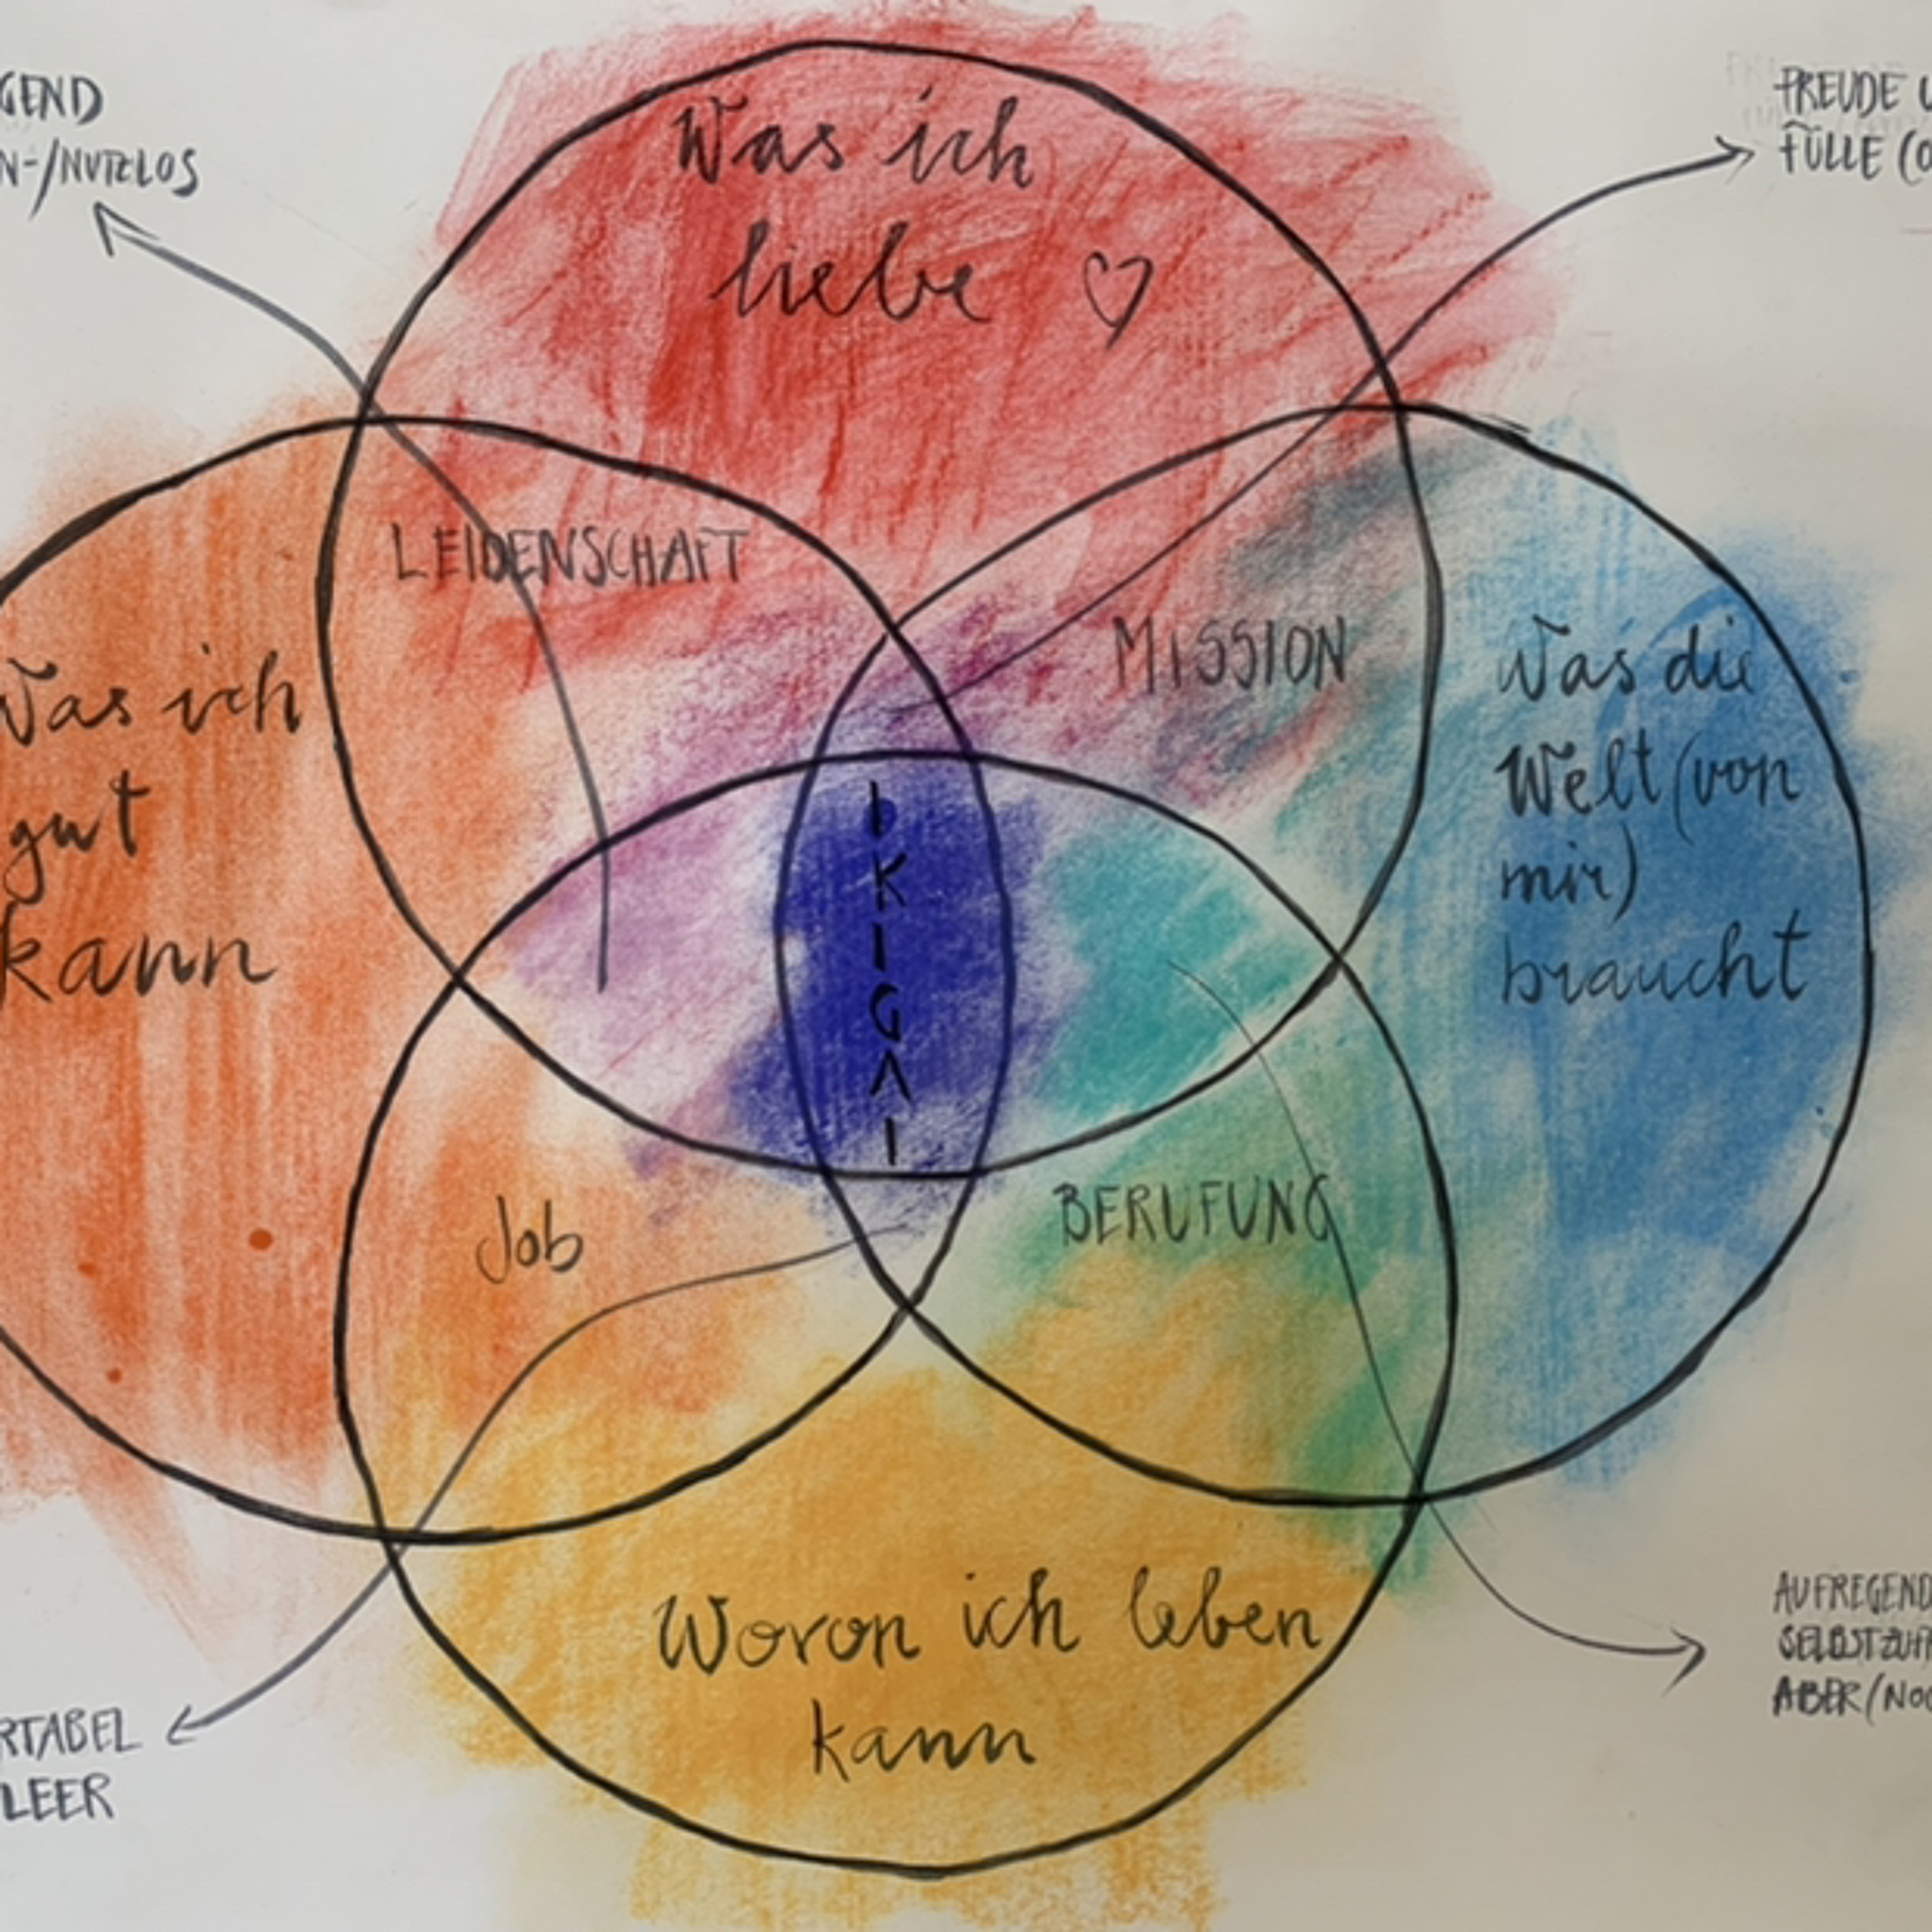 GEND
N-/NUTZLOS
FREUDE U
FÜLLE (O
Was ich
liebe ♡
LEIDENSCHAFT
MISSION
Was ich
gut
kann
Was die
Welt (von
mir)
braucht
IKIGAI
Job
BERUFUNG
Wovon ich leben
kann
RTABEL
LEER
AUFREGEND
SELBSTZUFR
ABER (NOC